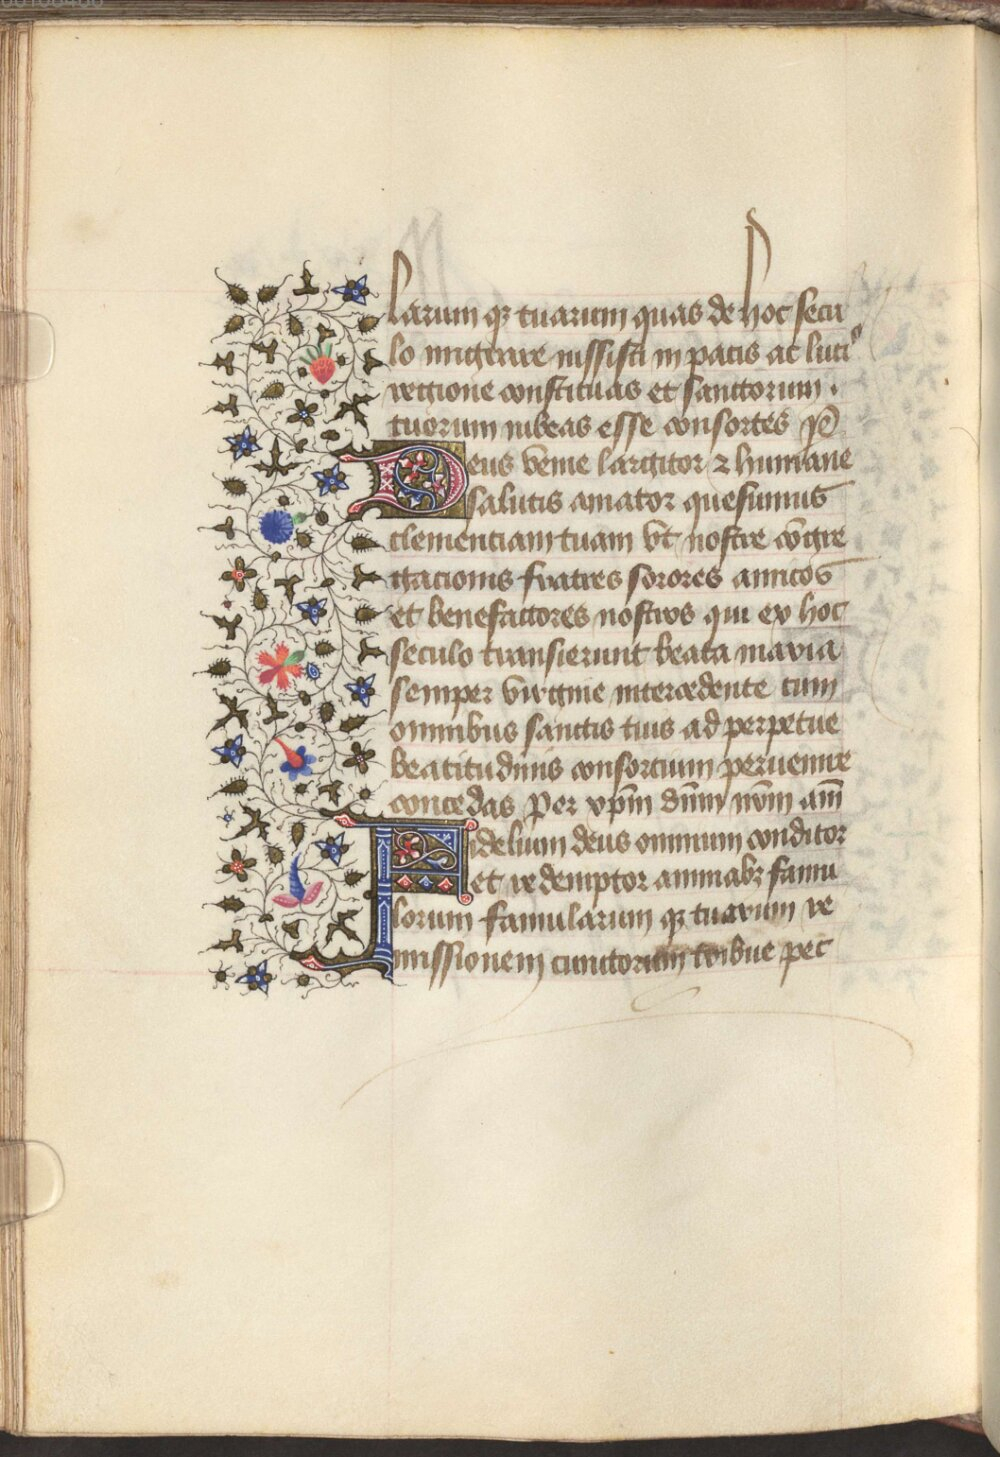 larum qꝫ tuarum quas de hoc secu
lo migrare iussisti in pacis ac luci⁹
regione constituas et sanctorum .
tuorum iubeas esse consortes p̄
Deus venie largitor ⁊ humane
salutis amator quesumus
clementiam tuam vt nostre cōgre
gacionis fratres sorores amicos
et benefactores nostros qui ex hoc
seculo transierunt beata maria
semper virgine intercedente cum
omnibus sanctis tuis ad perpetue
beatitudinis consorcium peruenire
concedas Per xp̄m dn̄m nr̄m am̄
Fidelium deus omnium conditor
et redemptor animabꝫ famu
lorum famularum qꝫ tuarum re
missionem cunctorum tribue pec